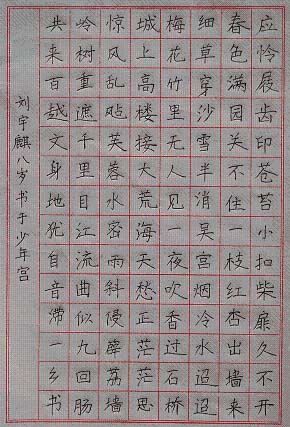 应怜屐齿印苍苔小扣柴扉久不开
春色满园关不住一枝红杏出墙来
细草穿沙雪半消吴宫烟冷水迢迢
梅花竹里无人见一夜吹香过石桥
城上高楼接大荒海天愁正茫茫思
惊风乱飐芙蓉水密雨斜侵薜荔墙
岭树重遮千里目江流曲似九回肠
共来百越文身地犹自音滞一乡书
刘宇麒八岁书于少年宫